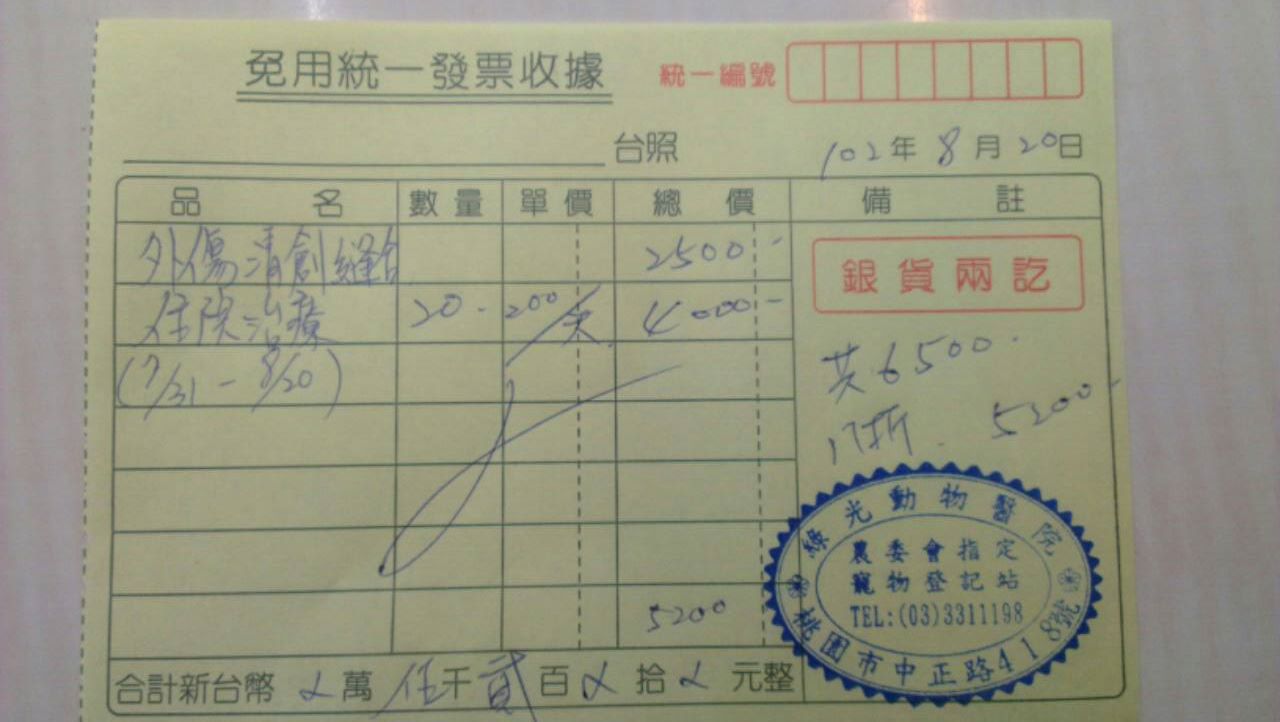 免用統一發票收據 統一編號
台照 102年8月20日
品名 數量 單價 總價 備註
外傷清創縫合 2500-
銀貨兩訖
住院治療 20- 200/天 4000-
(7/31-8/20)
共6500-
八折. 5200-
綠光動物醫院
農委會指定
寵物登記站
TEL:(03)3311198
桃園市中正路418號
5200
合計新台幣 萬 伍千貳百 拾 元整